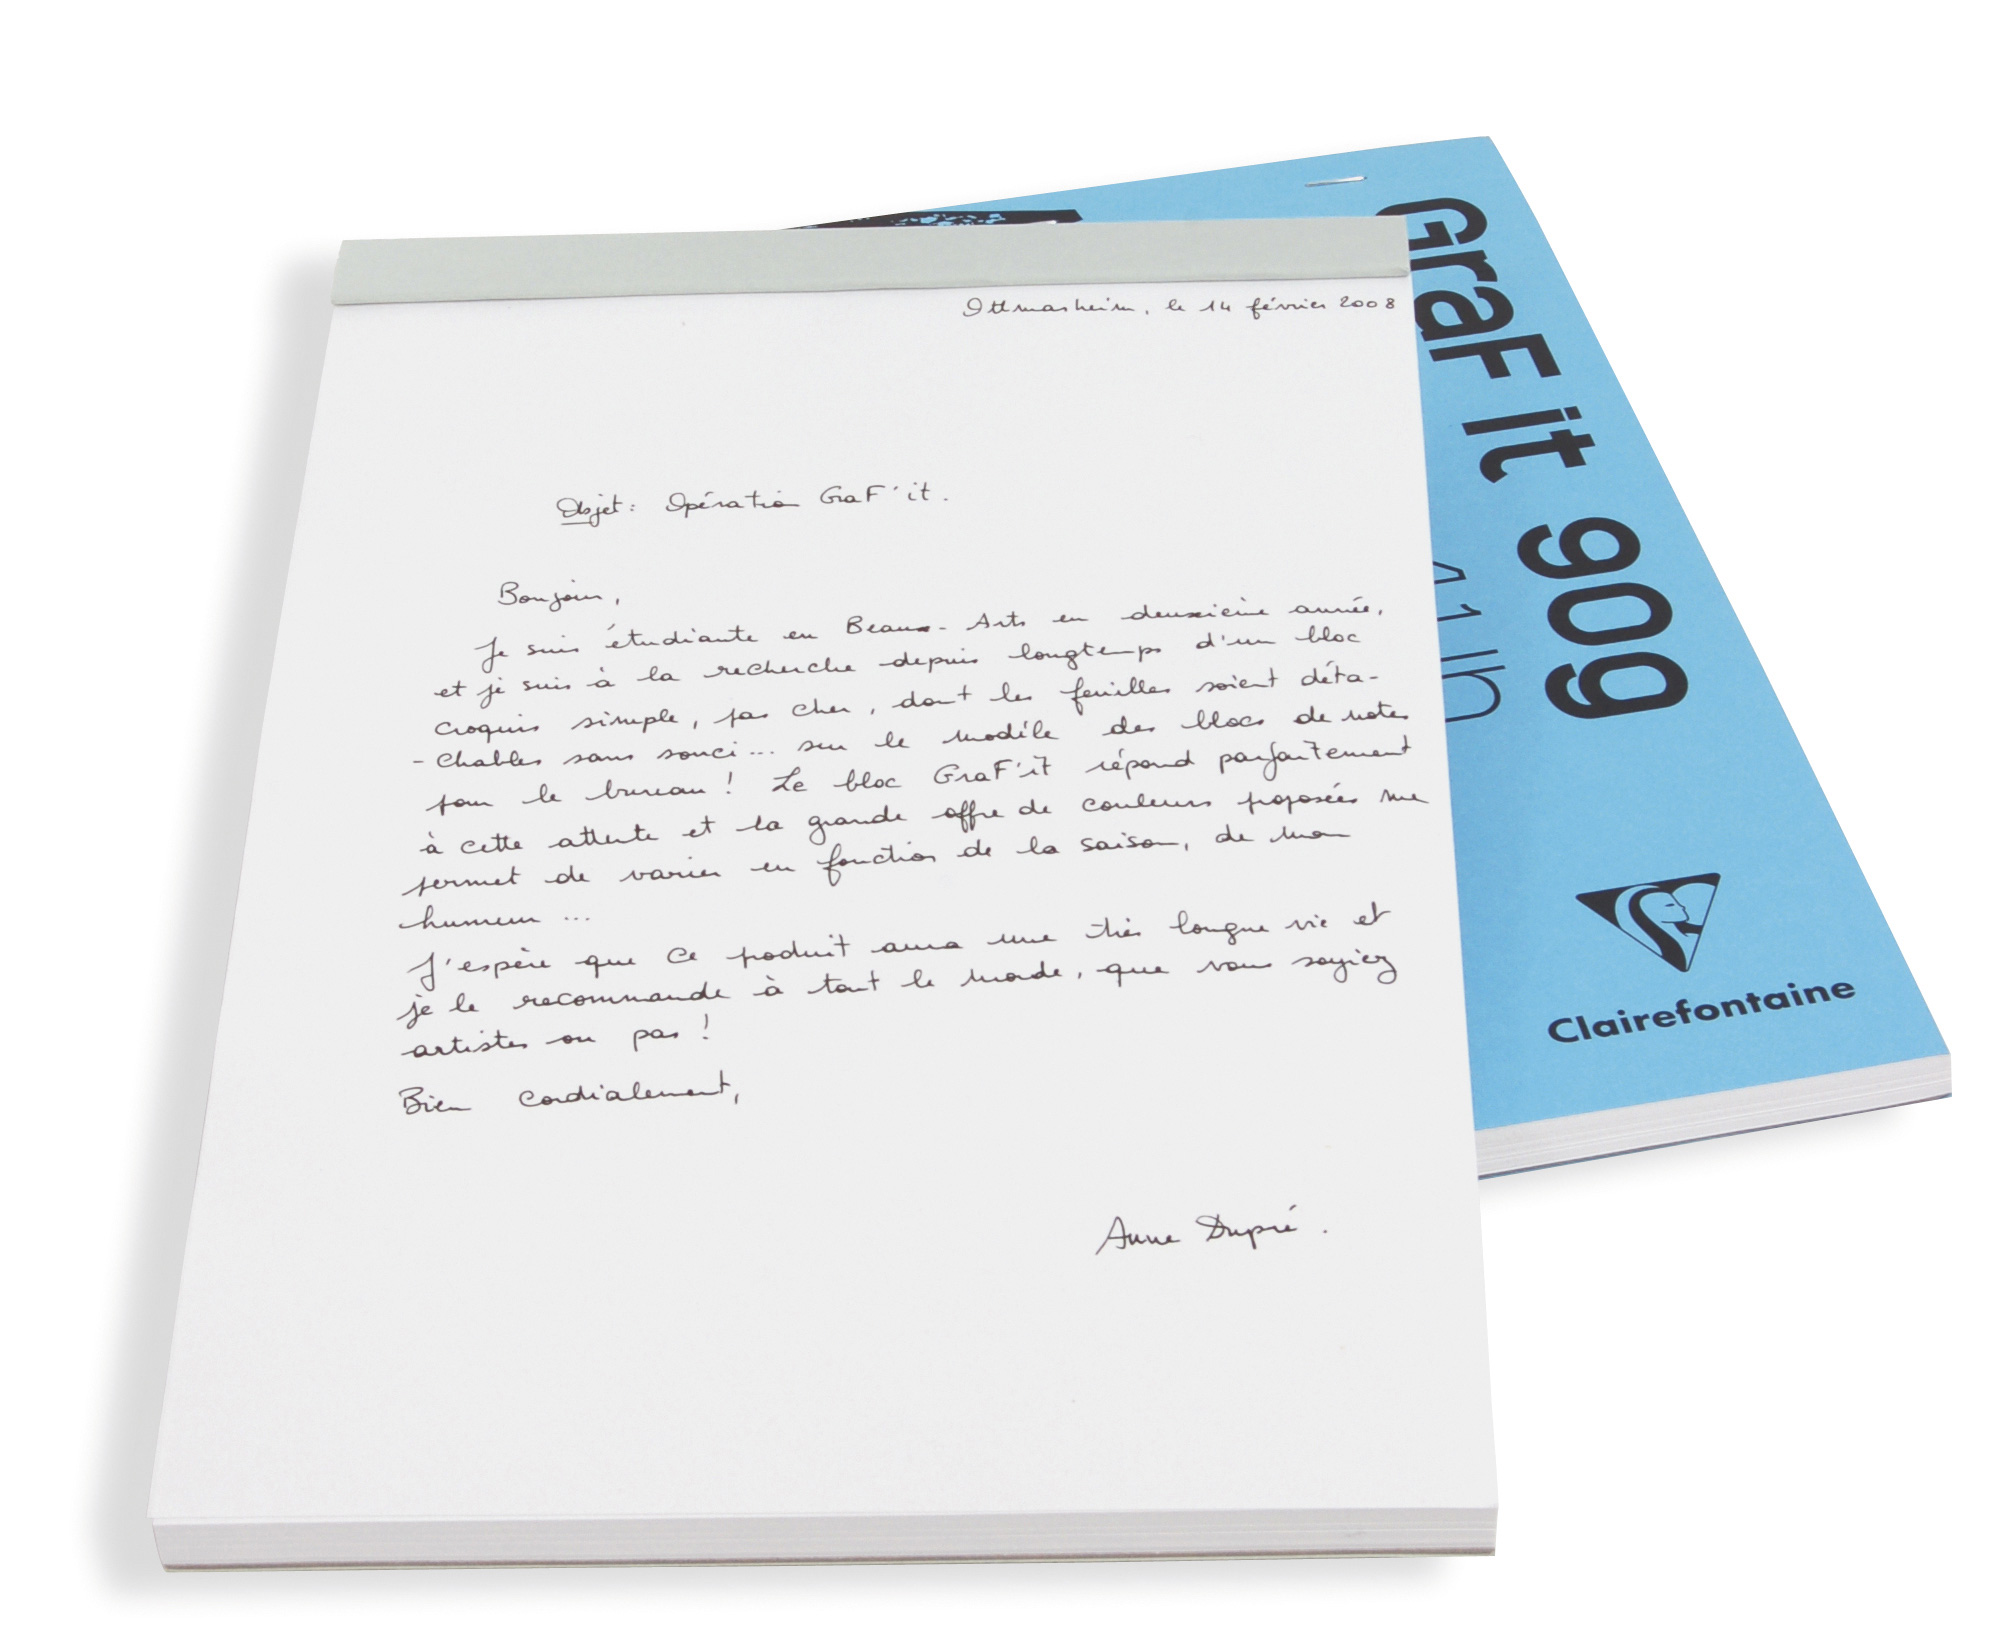 Ottmarsheim, le 14 février 2008
Objet: Opération GraF'it.
Bonjour,
Je suis étudiante en Beaux-Arts en deuxième année,
et je suis à la recherche depuis longtemps d'un bloc
croquis simple, pas cher, dont les feuilles soient déta-
-chables sans souci... sur le modèle des blocs de notes
pour le bureau ! Le bloc GraF'it répond parfaitement
à cette attente et la grande offre de couleurs proposées me
permet de varier en fonction de la saison, de mon
humeur ...
J'espère que ce produit aura une très longue vie et
je le recommande à tout le monde, que vous soyiez
artistes ou pas !
Bien cordialement,
Anne Dupré.
GraF it 90g
Clairefontaine